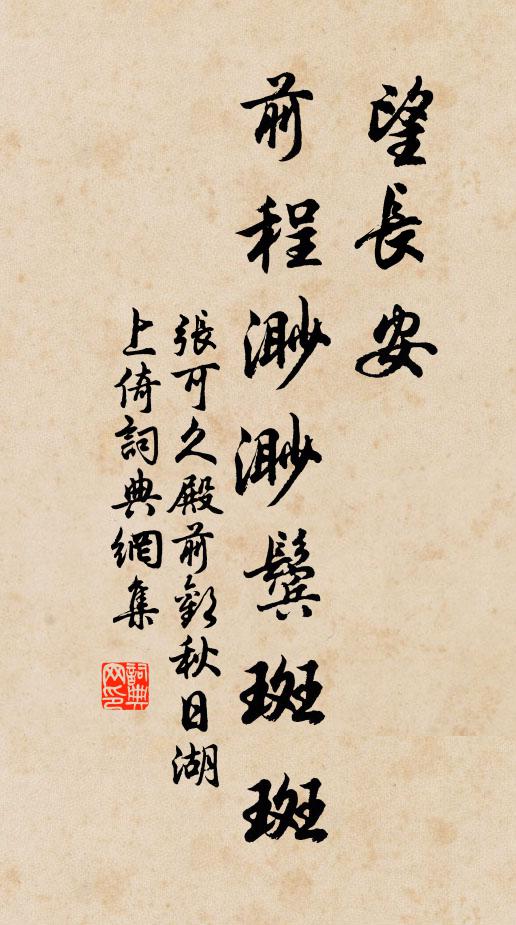 望長安
前程渺渺鬓斑斑
張可久殿前歡秋日湖
上倚詞典網集
詞典网印